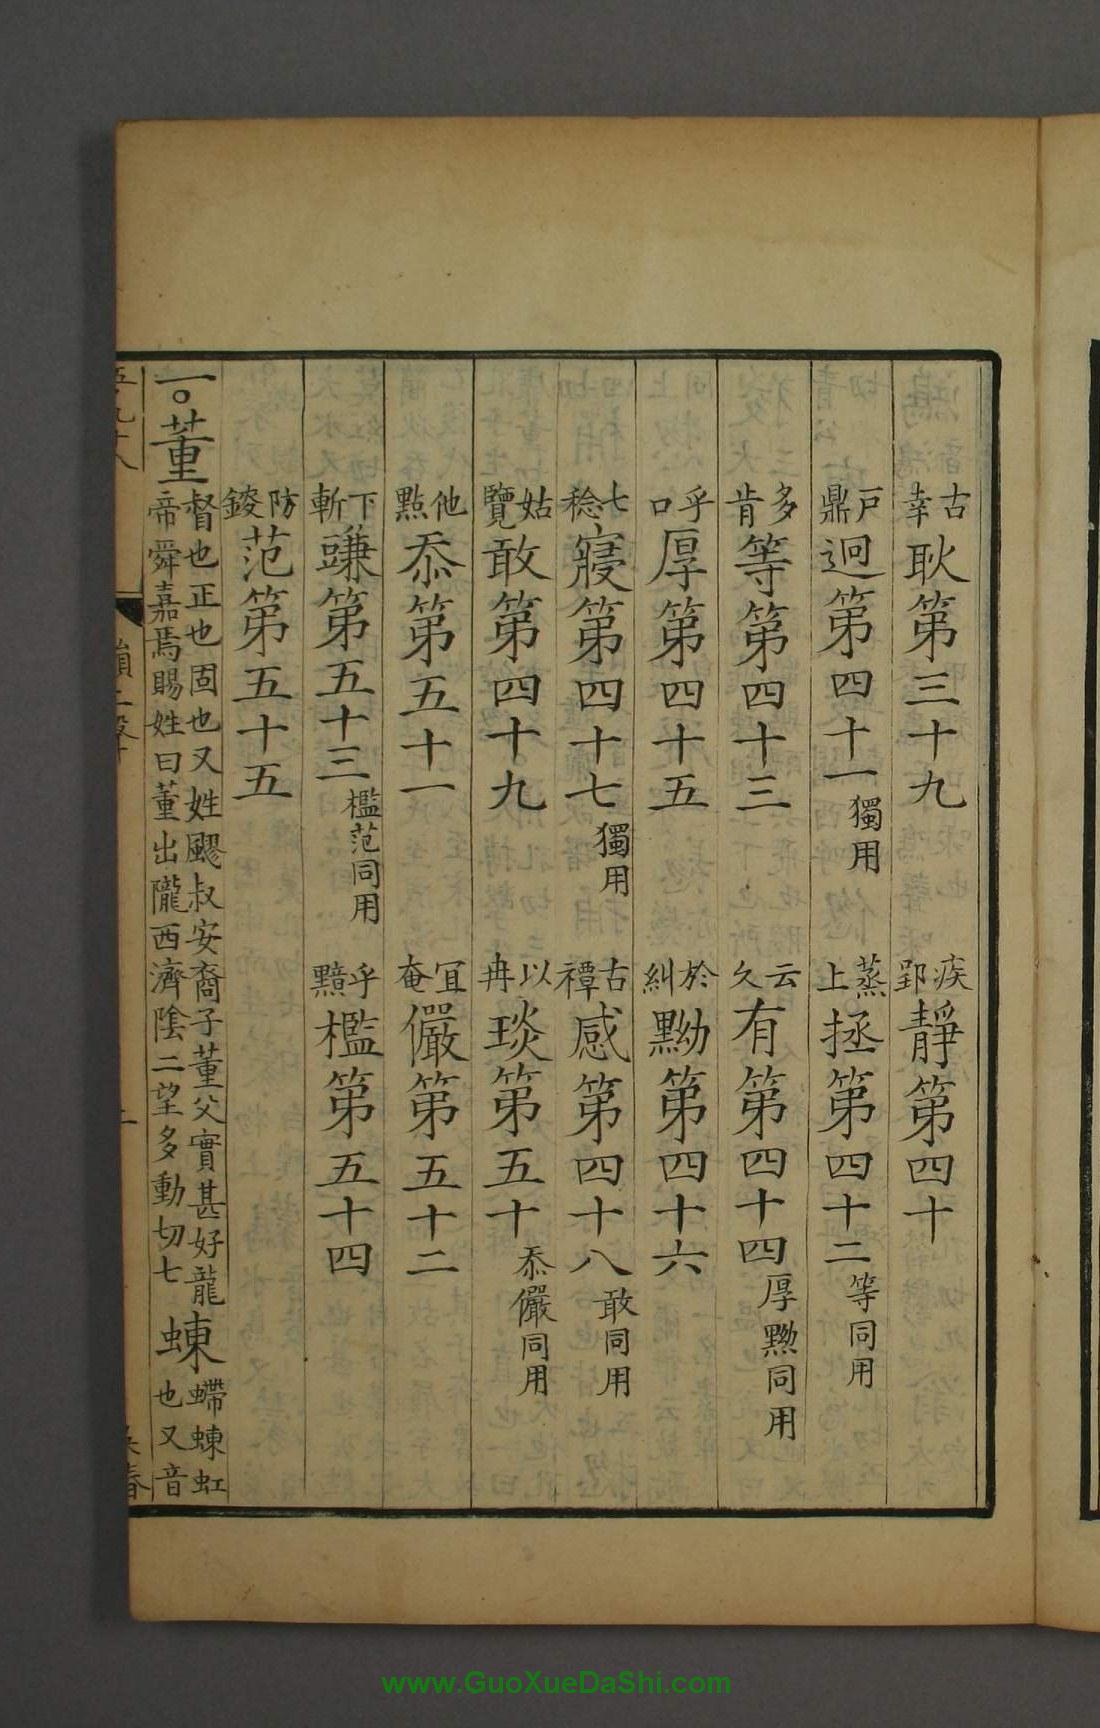 古幸耿第三十九　疾郢靜第四十
戶鼎迥第四十一獨用　蒸上拯第四十二等同用
多肯等第四十三　云久有第四十四厚黝同用
乎口厚第四十五　於糾黝第四十六
七稔寑第四十七獨用　古禫感第四十八敢同用
姑覽敢第四十九　以冉琰第五十忝儼同用
他點忝第五十一　冝奄儼第五十二
下斬豏第五十三檻范同用　乎黤檻第五十四
防錽范第五十五
一○董督也正也固也又姓飂叔安裔子董父實甚好龍帝舜嘉焉賜姓曰董出隴西濟隂二望多動切七蝀螮蝀虹也又音
www.GuoXueDaShi.com